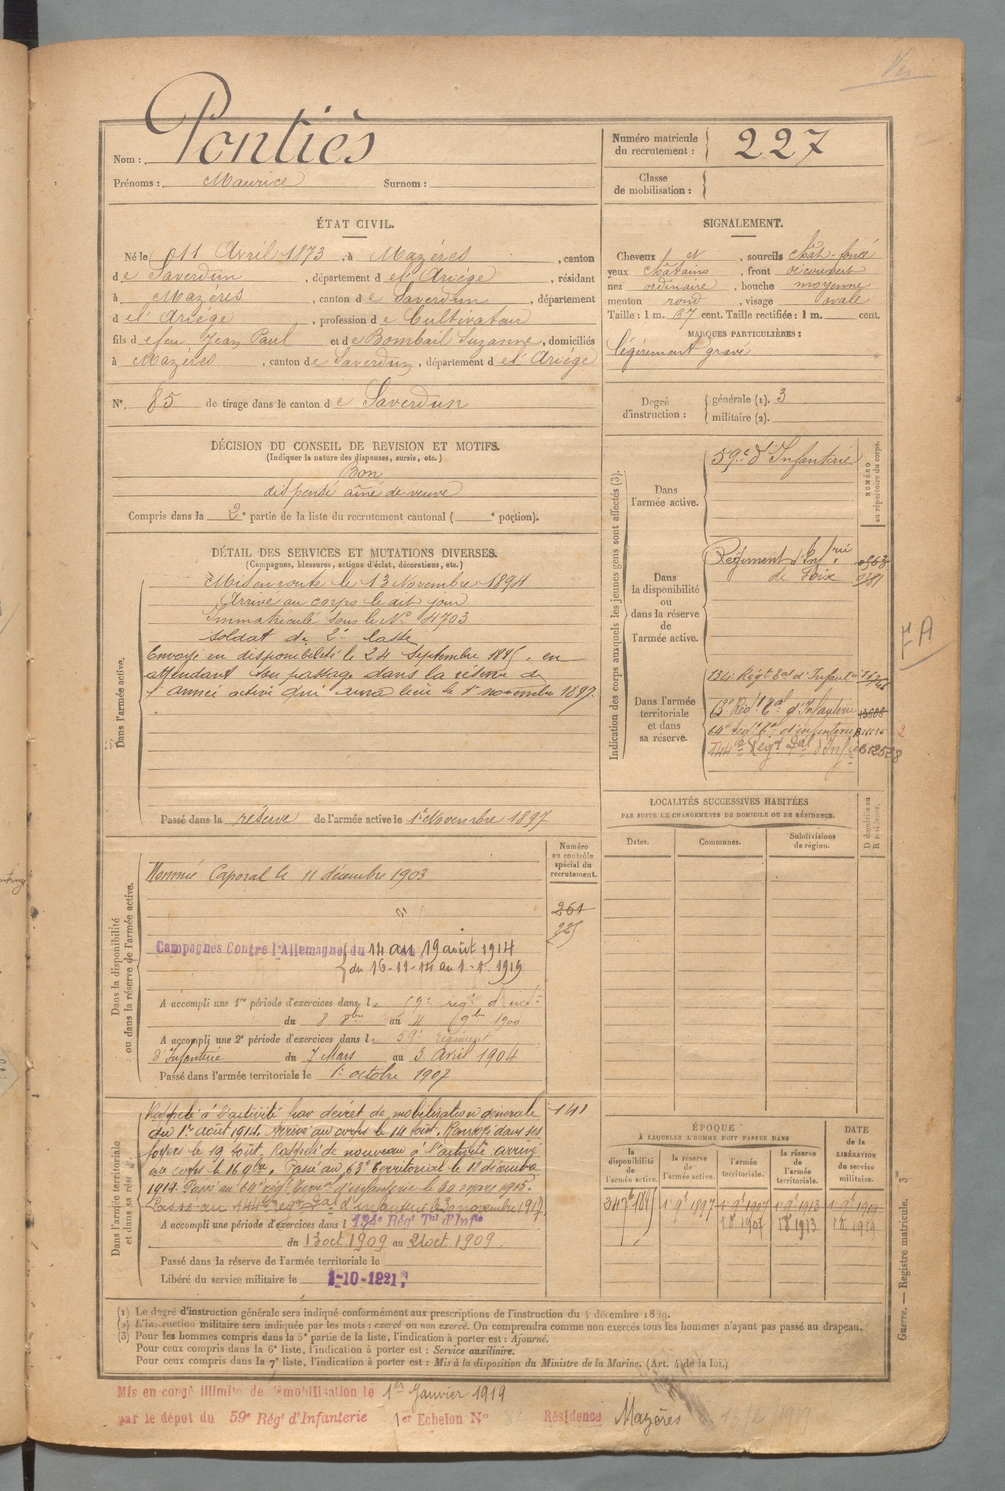 Nom : Pontiès
Prénoms : Maurice Surnom :
Numéro matricule du recrutement : 227
Classe de mobilisation :
ÉTAT CIVIL.
Né le 11 Avril 1873, à Mazères, canton
de Saverdun, département de l'Ariège, résidant
à Mazères, canton de Saverdun, département
de l'Ariège, profession de Cultivateur
fils de feu Jean Paul et de Bombail Suzanne, domiciliés
à Mazères, canton de Saverdun, département de l'Ariège
N° 85 de tirage dans le canton de Saverdun
SIGNALEMENT.
Cheveux et, sourcils chât-foncé
yeux châtains, front découvert
nez ordinaire, bouche moyenne
menton rond, visage ovale
Taille : 1 m. 67 cent. Taille rectifiée : 1 m. cent.
MARQUES PARTICULIÈRES :
légèrement gravé
Degré d'instruction : générale (1). 3
militaire (2).
DÉCISION DU CONSEIL DE REVISION ET MOTIFS.
(Indiquer la nature des dispenses, sursis, etc.)
Bon
dispensé aîné de veuve
Compris dans la 2e partie de la liste du recrutement cantonal ( e portion).
DÉTAIL DES SERVICES ET MUTATIONS DIVERSES.
(Campagnes, blessures, actions d'éclat, décorations, etc.)
Dans l'armée active.
Mis en route le 13 Novembre 1894
Arrivé au corps le dit jour
Immatriculé sous le N° 4703
soldat de 2e classe
Envoyé en disponibilité le 24 Septembre 1895, en
attendant son passage dans la réserve de
l'armée active qui aura lieu le 1er novembre 1897.
Passé dans la réserve de l'armée active le 1er Novembre 1897
Indication des corps auxquels les jeunes gens sont affectés (3).
NUMÉRO au répertoire du corps.
Dans l'armée active.
59e d'Infanterie
Dans la disponibilité ou dans la réserve de l'armée active.
Régiment d'Infrie
de Foix
Dans l'armée territoriale et dans sa réserve.
134e Régt Tal d'Infanterie
63e Régt Tal d'Infanterie
64e Régt Tal d'infanterie
144e Régt Tal d'Infie
7A
LOCALITÉS SUCCESSIVES HABITÉES
PAR SUITE DE CHANGEMENTS DE DOMICILE OU DE RÉSIDENCE.
Dates. Communes. Subdivisions de région. D domicile ou R résidence.
Dans la disponibilité ou dans la réserve de l'armée active.
Numéro au contrôle spécial du recrutement.
Nommé Caporal le 11 décembre 1903
261
Campagnes Contre l'Allemagne du 14 au 19 août 1914
du 16-11-14 au 1-1-1919
A accompli une 1re période d'exercices dans le 59e régt d'inf
du 8 8bre au 4 9bre 1900
A accompli une 2e période d'exercices dans le 59e régiment
d'Infanterie du 7 Mars au 3 Avril 1904
Passé dans l'armée territoriale le 1er octobre 1907
Dans l'armée territoriale et dans sa réserve.
141
Rappelé à l'activité par décret de mobilisation générale
du 1er août 1914. Arrivé au corps le 14 août. Renvoyé dans ses
foyers le 19 août. Rappelé de nouveau à l'activité arrivé
au corps le 16 9bre. Passé au 63e Territorial le 1er décembre
1914. Passé au 64e régt territ d'infanterie le 30 mars 1915.
Passé au 144e Régt Tal d'infanterie le 30 novembre 1917
A accompli une période d'exercices dans l 134e Régt Tal d'Infie
du 13 oct 1909 au 21 oct 1909
Passé dans la réserve de l'armée territoriale le
Libéré du service militaire le 1-10-1921
ÉPOQUE
À LAQUELLE L'HOMME DOIT PASSER DANS
DATE de la LIBÉRATION du service militaire.
la disponibilité de l'armée active. la réserve de l'armée active. l'armée territoriale. la réserve de l'armée territoriale.
1907 1913 1919
(1) Le degré d'instruction générale sera indiqué conformément aux prescriptions de l'instruction du 4 décembre 1889.
(2) L'instruction militaire sera indiquée par les mots : exercé ou non exercé. On comprendra comme non exercés tous les hommes n'ayant pas passé au drapeau.
(3) Pour les hommes compris dans la 5e partie de la liste, l'indication à porter est : Ajourné.
Pour ceux compris dans la 6e liste, l'indication à porter est : Service auxiliaire.
Pour ceux compris dans la 7e liste, l'indication à porter est : Mis à la disposition du Ministre de la Marine. (Art. 4 de la loi.)
Guerre. — Registre matricule. 3
Mis en congé illimité de démobilisation le 1er Janvier 1919
par le dépôt du 59e Régt d'Infanterie 1er Echelon N° Résidence Mazères